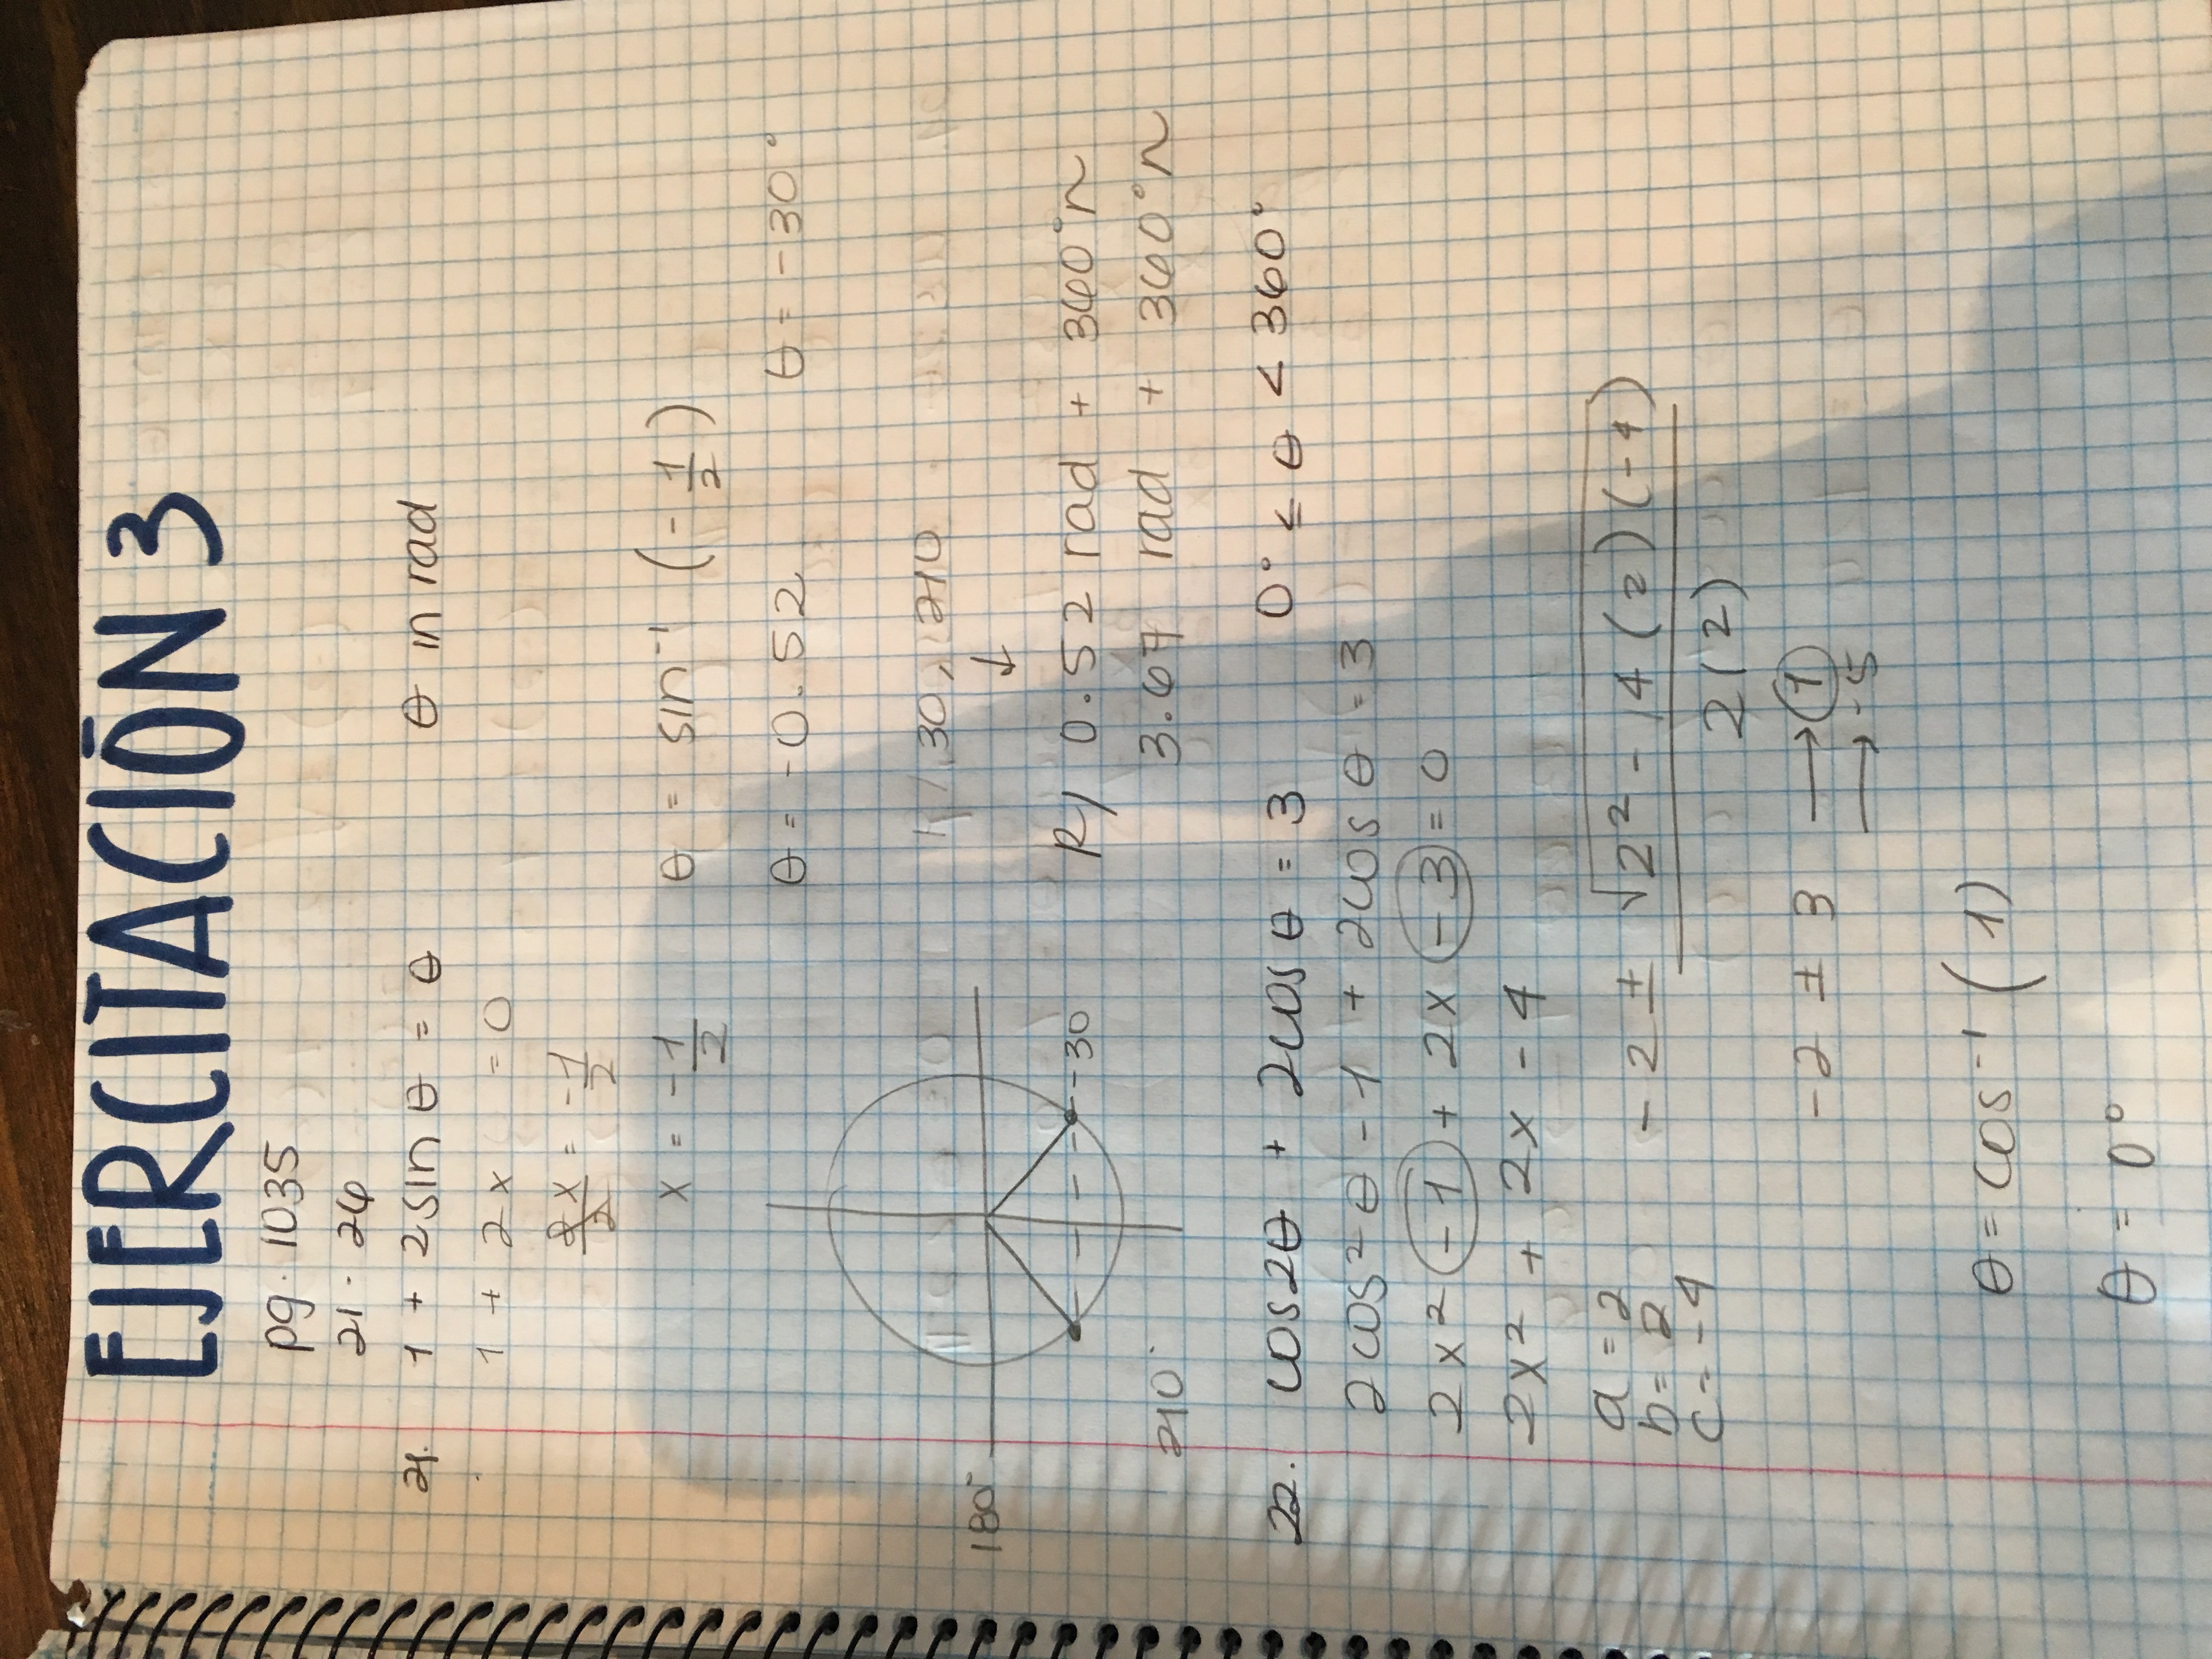 EJERCITACIÓN 3
pg. 1035
21 - 26
21. 1 + 2sin θ = θ    θ in rad
1 + 2x = 0
2x/2 = -1/2
x = -1/2    θ = sin⁻¹ (-1/2)
θ = -0.52    θ = -30°
180°    30, 210
-30
210°
R/ 0.52 rad + 360°n
3.67 rad + 360°n
22. cos2θ + 2cosθ = 3    0° ≤ θ < 360°
2cos²θ - 1 + 2cosθ = 3
2x² - 1 + 2x - 3 = 0
2x² + 2x - 4
a = 2
b = 2
c = -4
-2 ± √2² - 4(2)(-4)
2(2)
-2 ± 3 → 1
→ -5
θ = cos⁻¹ (1)
θ = 0°